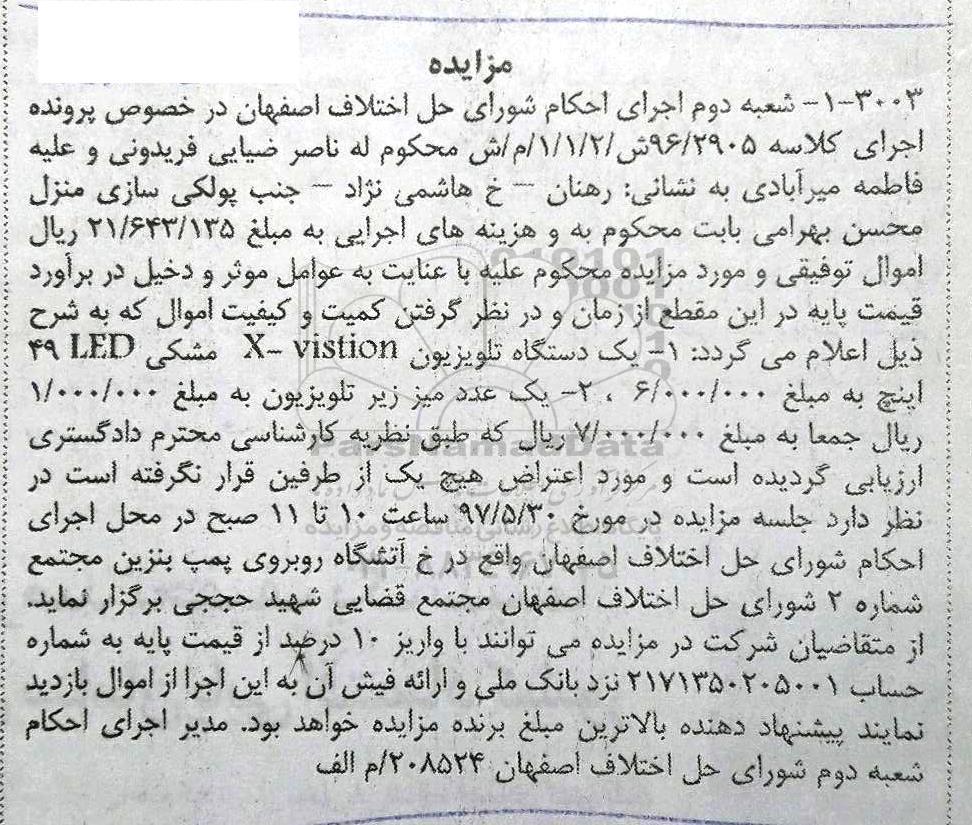 مزایده
۱-۳۰۰۳- شعبه دوم اجرای احکام شورای حل اختلاف اصفهان در خصوص پرونده
اجرای کلاسه ۹۶/۲۹۰۵ش/۱/۱/۲/م/ش محکوم له ناصر ضیایی فریدونی و علیه
فاطمه میرآبادی به نشانی: رهنان – خ هاشمی نژاد – جنب پولکی سازی منزل
محسن بهرامی بابت محکوم به و هزینه های اجرایی به مبلغ ۲۱/۶۴۳/۱۳۵ ریال
اموال توقیفی و مورد مزایده محکوم علیه با عنایت به عوامل موثر و دخیل در برآورد
قیمت پایه در این مقطع از زمان و در نظر گرفتن کمیت و کیفیت اموال که به شرح
ذیل اعلام می گردد: ۱- یک دستگاه تلویزیون X- vistion مشکی LED ۴۹
اینچ به مبلغ ۶/۰۰۰/۰۰۰ ، ۲- یک عدد میز زیر تلویزیون به مبلغ ۱/۰۰۰/۰۰۰
ریال جمعا به مبلغ ۷/۰۰۰/۰۰۰ ریال که طبق نظریه کارشناسی محترم دادگستری
ارزیابی گردیده است و مورد اعتراض هیچ یک از طرفین قرار نگرفته است در
نظر دارد جلسه مزایده در مورخ ۹۷/۵/۳۰ ساعت ۱۰ تا ۱۱ صبح در محل اجرای
احکام شورای حل اختلاف اصفهان واقع در خ آتشگاه روبروی پمپ بنزین مجتمع
شماره ۲ شورای حل اختلاف اصفهان مجتمع قضایی شهید حججی برگزار نماید.
از متقاضیان شرکت در مزایده می توانند با واریز ۱۰ درصد از قیمت پایه به شماره
حساب ۲۱۷۱۳۵۰۲۰۵۰۰۱ نزد بانک ملی و ارائه فیش آن به این اجرا از اموال بازدید
نمایند پیشنهاد دهنده بالاترین مبلغ برنده مزایده خواهد بود. مدیر اجرای احکام
شعبه دوم شورای حل اختلاف اصفهان ۲۰۸۵۲۴/م الف
ParsNamadData